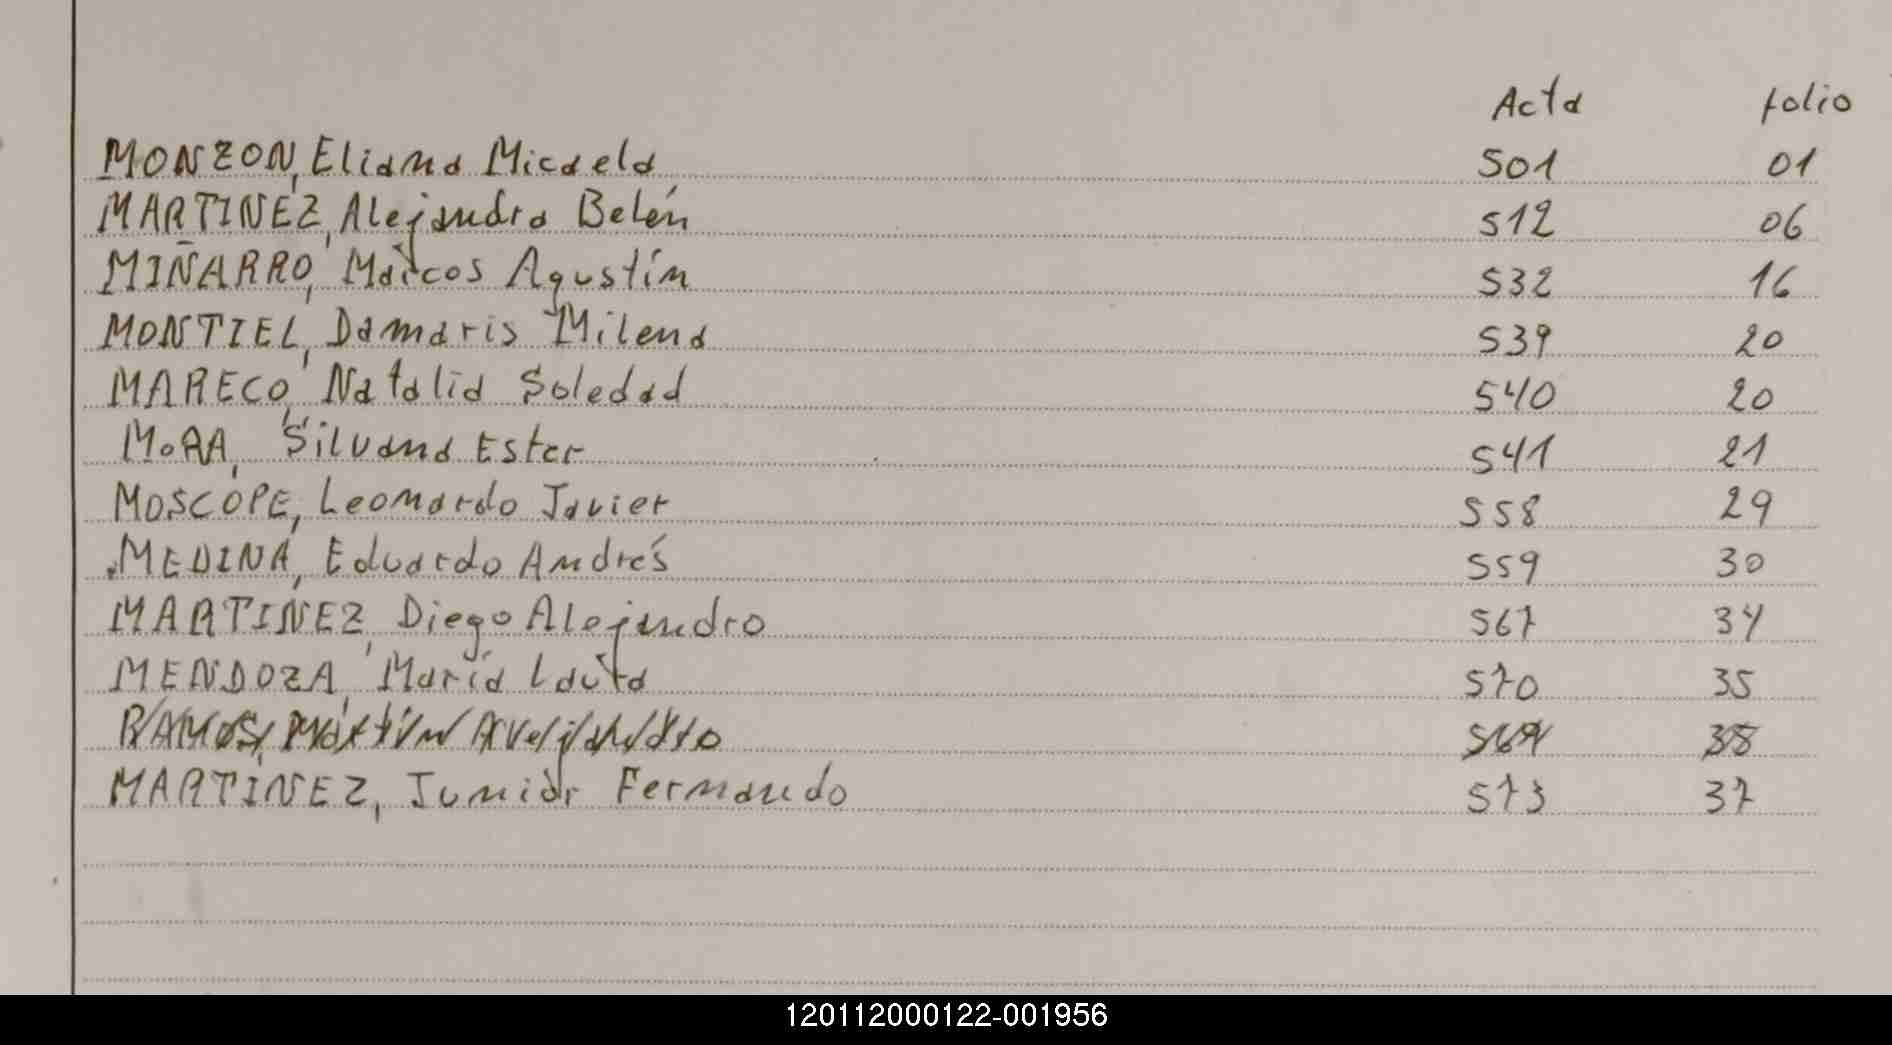 Acta folio
MONZON, Eliana Micaela 501 01
MARTINEZ, Alejandra Belén 512 06
MIÑARRO, Marcos Agustín 532 16
MONTIEL, Damaris Milena 539 20
MARECO, Natalia Soledad 540 20
MORA, Silvana Ester 541 21
MOSCOPE, Leonardo Javier 558 29
MEDINA, Eduardo Andrés 559 30
MARTINEZ, Diego Alejandro 567 34
MENDOZA, María Laura 570 35
RAMOS, Martín
MARTINEZ, Junior Fernando 573 37
120112000122-001956